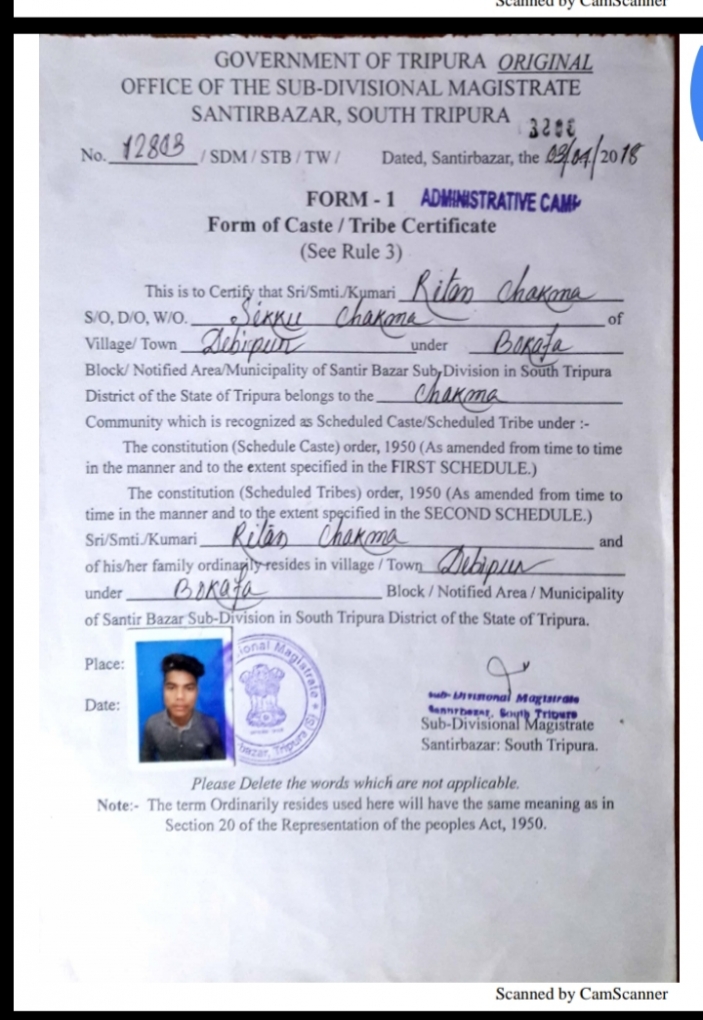 Scanned by CamScanner
GOVERNMENT OF TRIPURA ORIGINAL
OFFICE OF THE SUB-DIVISIONAL MAGISTRATE
SANTIRBAZAR, SOUTH TRIPURA
No. 12803 / SDM / STB / TW / Dated, Santirbazar, the 03/04/2018
FORM - 1 ADMINISTRATIVE CAMP
Form of Caste / Tribe Certificate
(See Rule 3)
This is to Certify that Sri/Smti./Kumari Ritan Chakma
S/O, D/O, W/O. Sikku Chakma of
Village/ Town Debipur under Bokafa
Block/ Notified Area/Municipality of Santir Bazar Sub Division in South Tripura
District of the State of Tripura belongs to the Chakma
Community which is recognized as Scheduled Caste/Scheduled Tribe under :-
The constitution (Schedule Caste) order, 1950 (As amended from time to time
in the manner and to the extent specified in the FIRST SCHEDULE.)
The constitution (Scheduled Tribes) order, 1950 (As amended from time to
time in the manner and to the extent specified in the SECOND SCHEDULE.)
Sri/Smti./Kumari Ritan Chakma and
of his/her family ordinarily resides in village / Town Debipur
under Bokafa Block / Notified Area / Municipality
of Santir Bazar Sub-Division in South Tripura District of the State of Tripura.
Place:
Date:
ional Magistrate
bazar, Tripura (S)
Sub-Divisional Magistrate
Santirbazar, South Tripura
Sub-Divisional Magistrate
Santirbazar: South Tripura.
Please Delete the words which are not applicable.
Note:- The term Ordinarily resides used here will have the same meaning as in
Section 20 of the Representation of the peoples Act, 1950.
Scanned by CamScanner